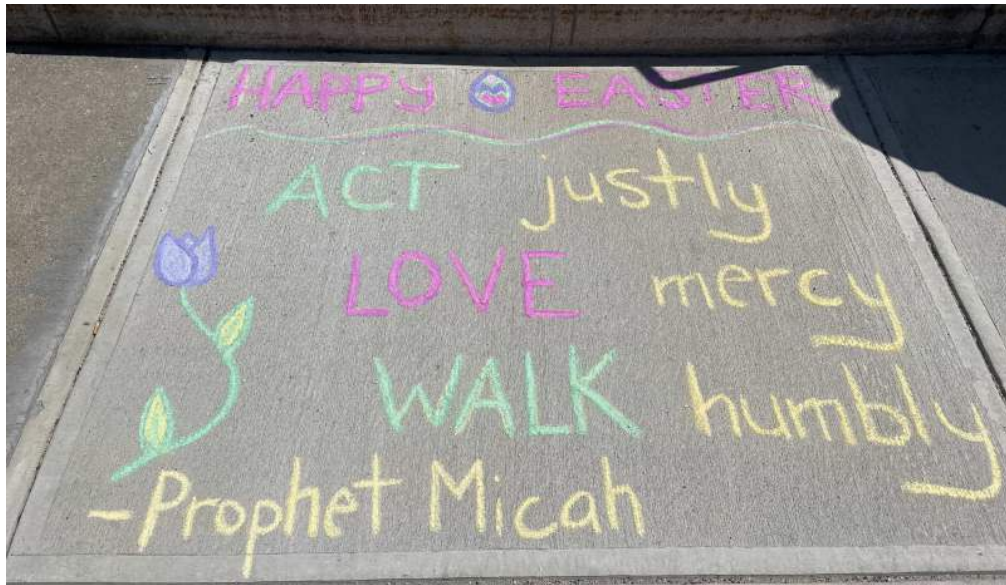 HAPPY EASTER
ACT justly
LOVE mercy
WALK humbly
-Prophet Micah